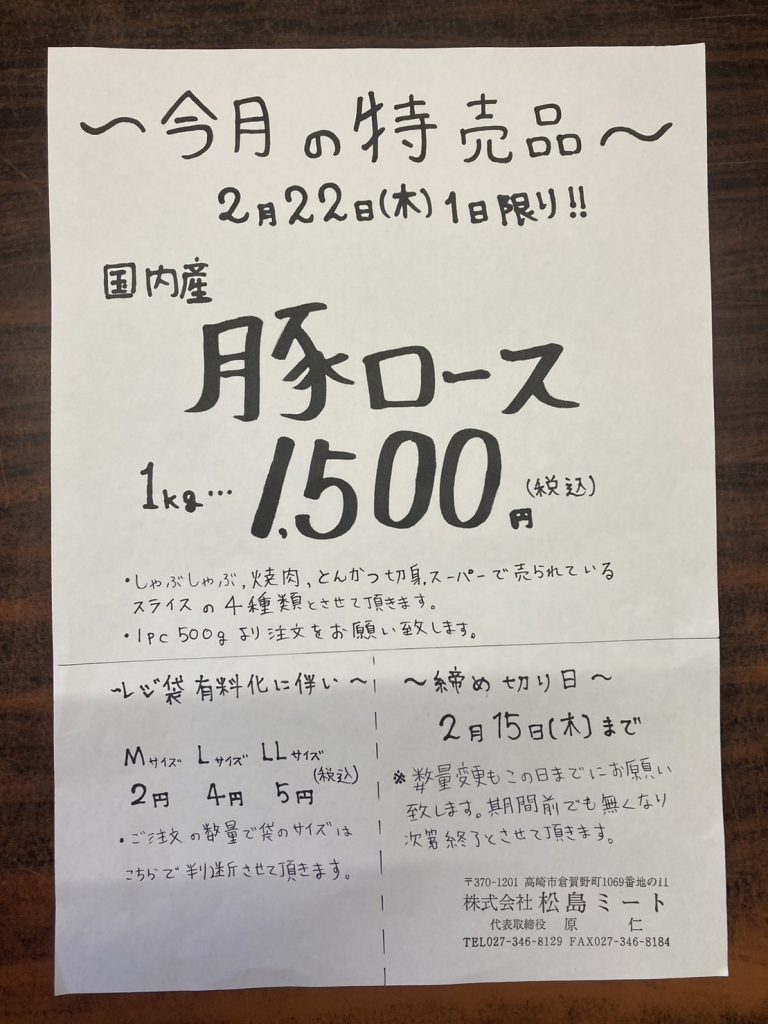 ～今月の特売品～
2月22日(木)1日限り!!
国内産
豚ロース
1kg…1,500円(税込)
・しゃぶしゃぶ,焼肉,とんかつ切身,スーパーで売られている
スライスの4種類とさせて頂きます。
・1pc 500gより注文をお願い致します。
～レジ袋有料化に伴い～
Mサイズ Lサイズ LLサイズ
(税込)
2円 4円 5円
・ご注文の数量で袋のサイズは
こちらで判断させて頂きます。
～締め切り日～
2月15日(木)まで
※数量変更もこの日までにお願い
致します。期間前でも無くなり
次第終了とさせて頂きます。
〒370-1201 高崎市倉賀野町1069番地の11
株式会社 松島ミート
代表取締役 原 仁
TEL027-346-8129 FAX027-346-8184